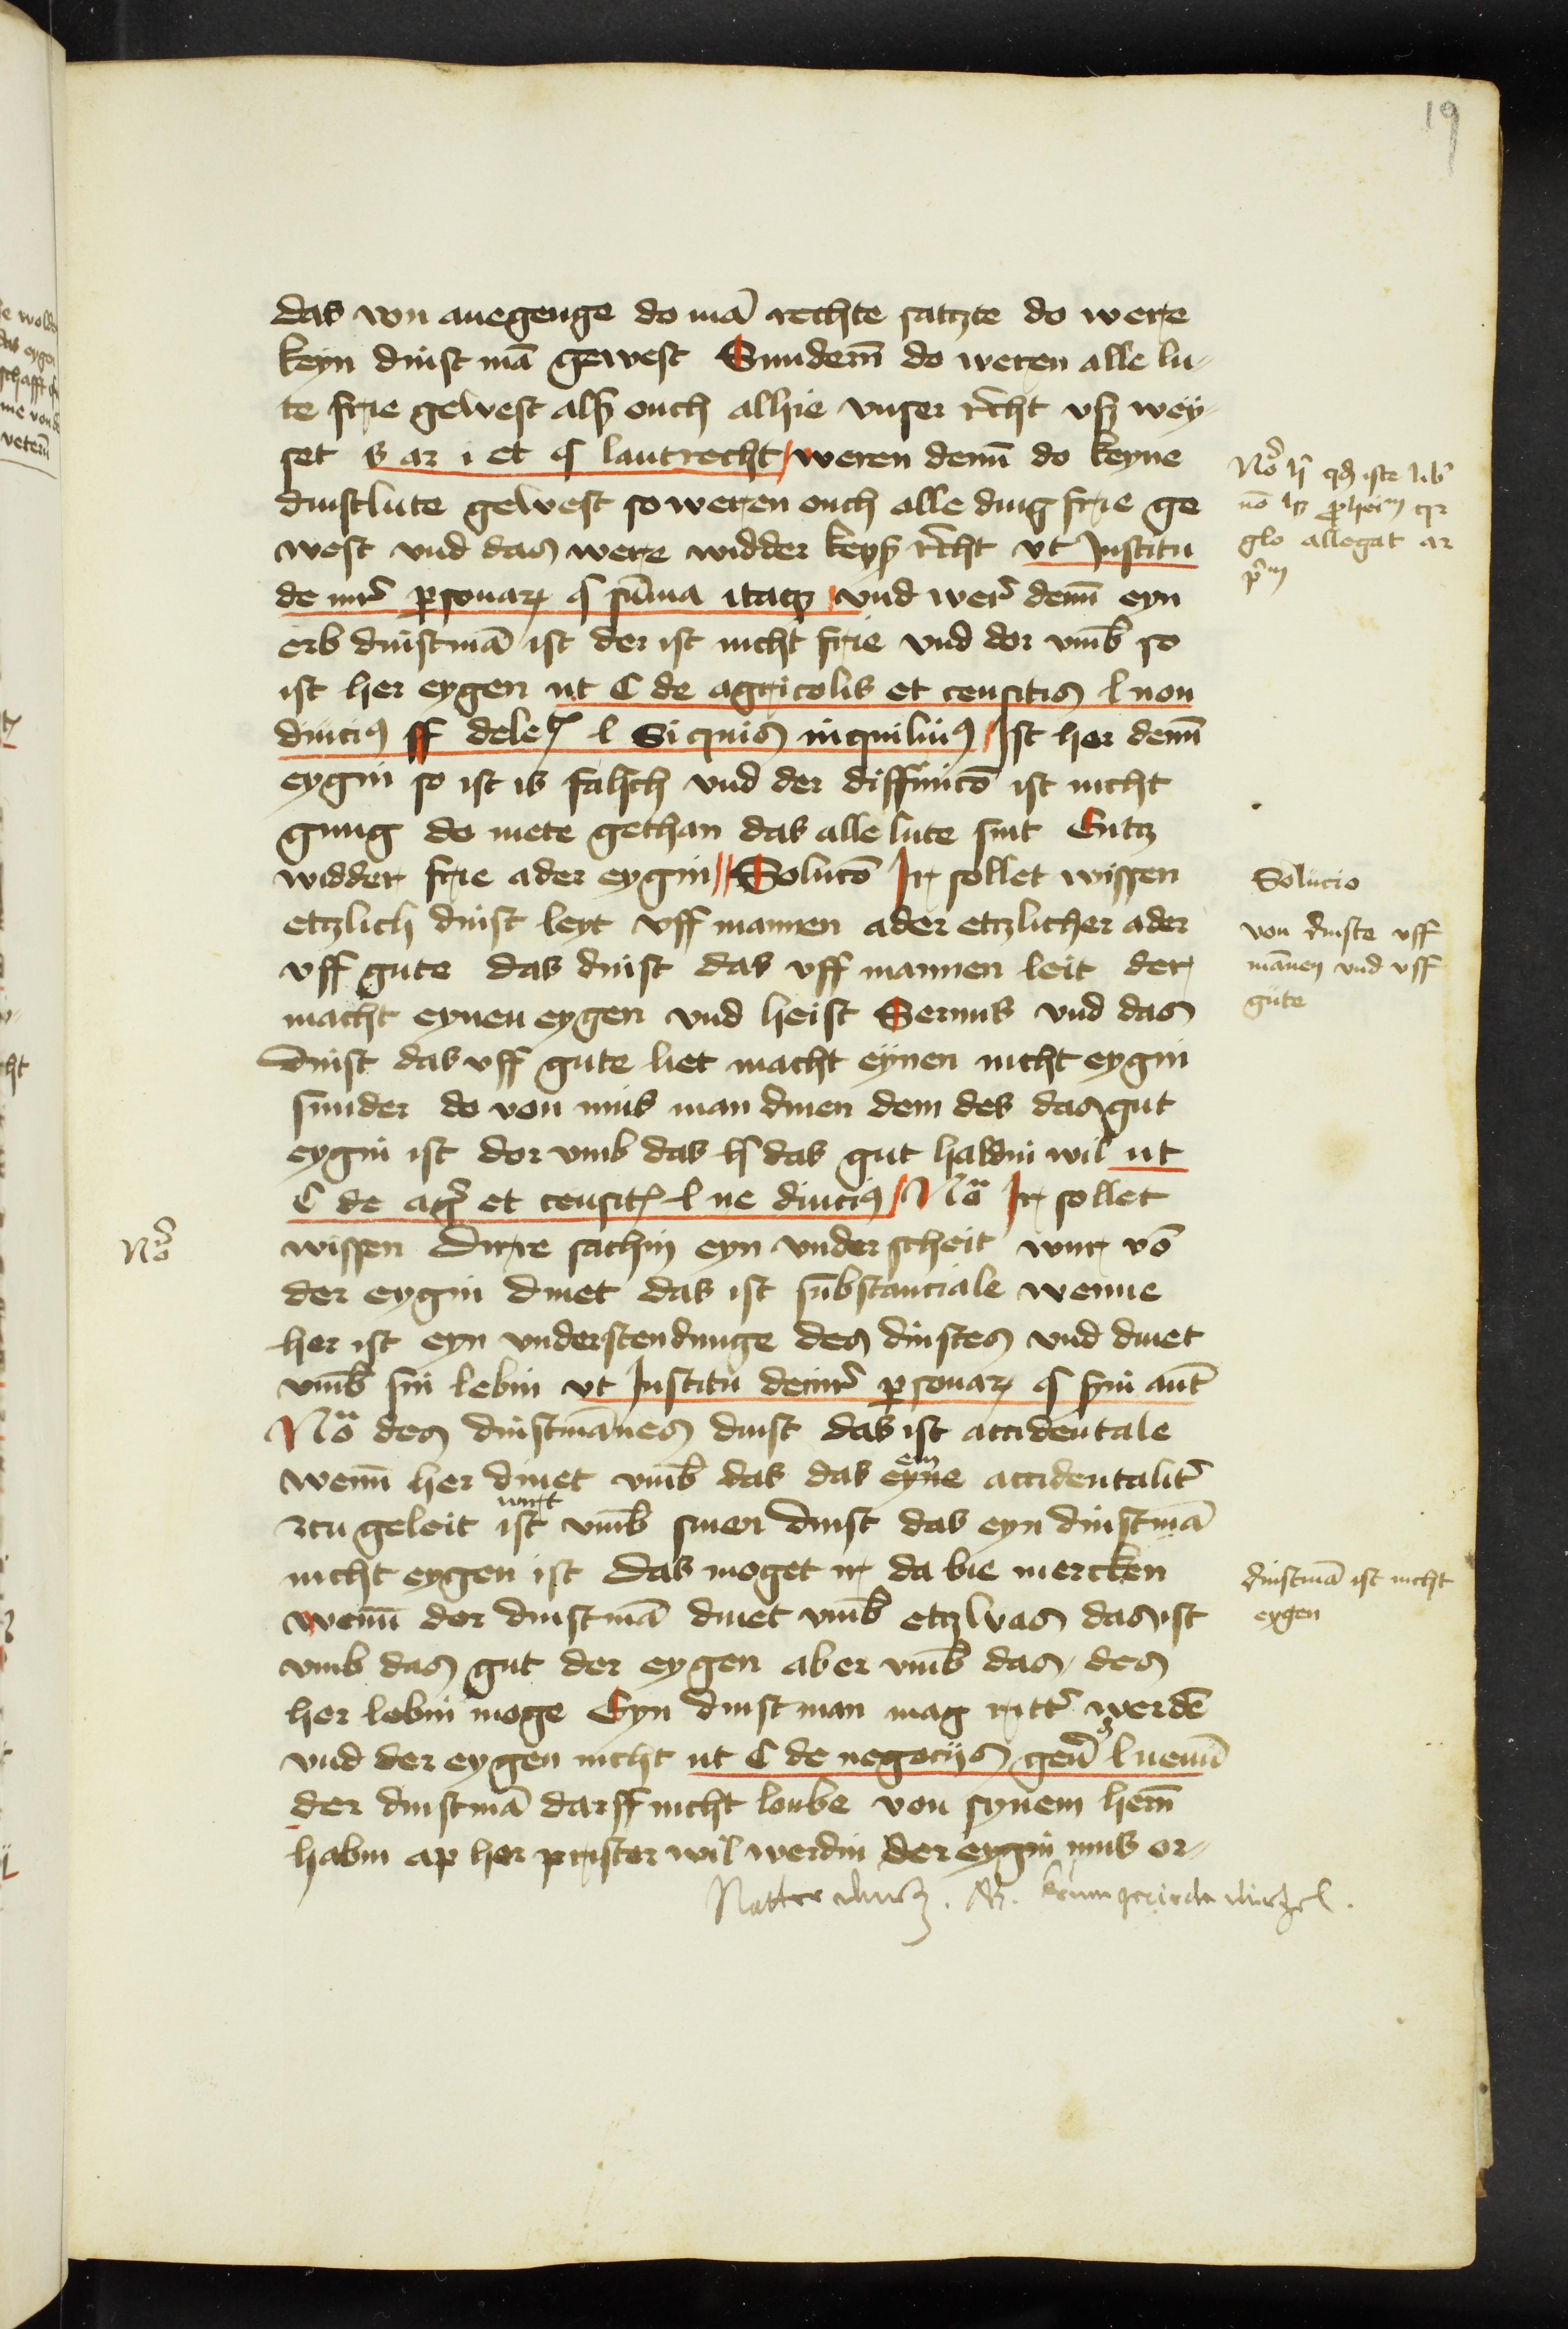 19
das von anegenge do mā rechte satzte do were
keyn dinst mā gewest Sundern̄ do weren alle lu-
te frie gewest alß ouch alhie vnser r̄cht vß wey-
set s ar i et § lantrecht weren denn̄ do keyne
dinstlute gewest so weren ouch alle ding frie ge
west vnd das were widder keyß r̄cht vt Institu
de iur̄ ꝑsonaꝝ § sūma itaqꝫ vnd wer̄ denn̄ eyn
erb dinstmā ist der ist nicht frie vnd dor vmb̄ so
ist her eygen ut C de agricolis et censitis l non
diuciꝰ ff de le l Si quis inquilinꝰ Ist her denn̄
eygin so ist is falsch vnd der diffinicō ist nicht
gnug do mete gethan das alle lute sint Entz
widder frie ader eygin Solucō Ir sollet wissen
etzlich dinst leyt vff mannen ader etzlicher ader
vff gute das dinst das vff mannen leit der
macht eynen eygen vnd heist Seruus vnd das
dinst das vff gute liet macht eynen nicht eygin
sunder do von mus man dinen dem des das gut
eygin ist dor vmb das h' das gut haldin wil ut
C de agr̄ et censit l ne diuciꝰ Nō Ir sollet
wissen Dirre sachin eyn vnderscheit wur vō
der eygin dinet das ist substanciale wenne
her ist eyn vnderstendunge des dinstes vnd dinet
vmb̄ sin lebin vt Institu de iur̄ ꝑsonaꝝ § s̄ui aut̄
Nō des dinstmānes dinst das ist accidentale
wenn̄ her dinet vmb̄ das das eyne accidentalit̄
em
ztu geleit ist vmb̄ siner dinst das eyn dinstmā
wirt
nicht eygen ist Das moget ir da bie mercken
wenn̄ der dinstmā dinet vmb̄ etzwas das ist
vmb das gut der eygen aber vmb̄ das des
her lebin moge Eyn dinstman mag ritt̄ werdē
vnd der eygen nicht ut C de negociis gen̄ l nemī
der dinstmā darff nicht loube von synem hern̄
habin ap her prister wil werdin der eygin mus er-
Nō
glo allegat ar
pm
Solucio
von dinste vff
mānen vnd vff
gute
dinstmā ist nicht
eygen